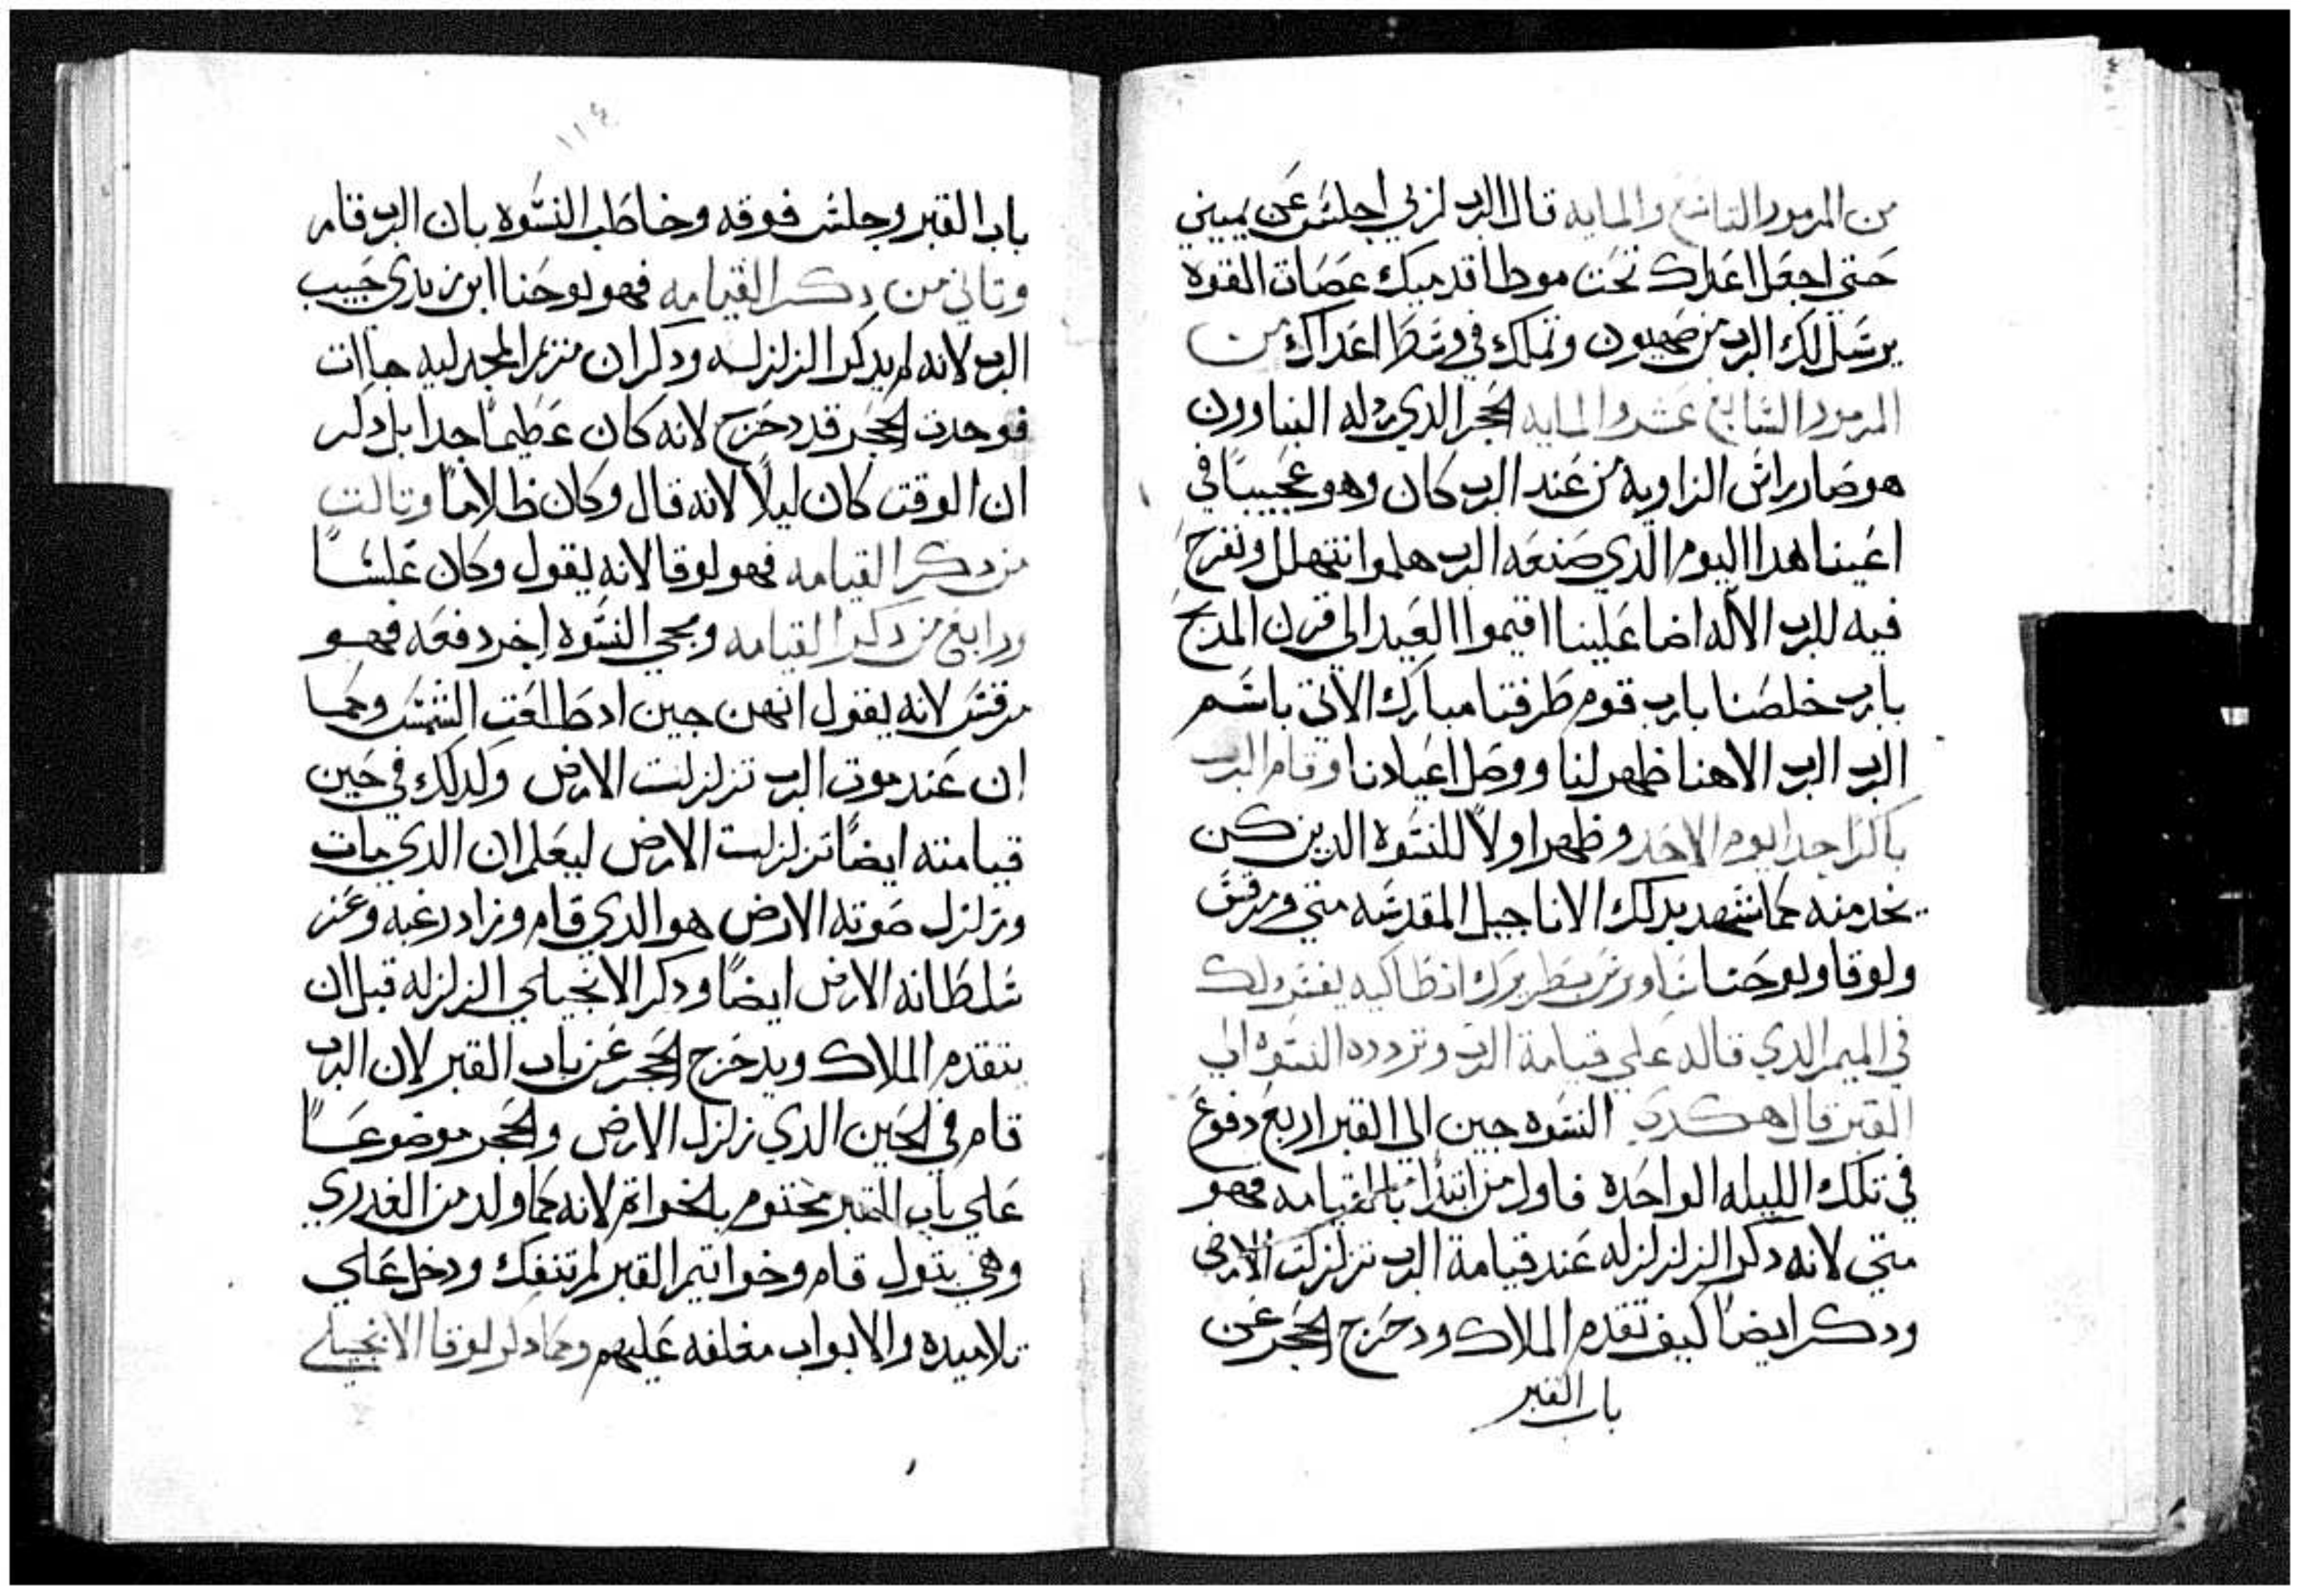 من المزمور التاسع والمايه قال الرب لربي اجلس عن يميني
حتي اجعل اعداك تحت موطا قدميك عصات القوه
يرسل لك الرب من صهيون وتملك في وسط اعداك من
المزمور السابع عشر والمايه الحجر الدي رذله البناوون
هو صار راس الزاوية من عند الرب كان وهو عجيبًا في
اعيننا هدا اليوم الدي صنعه الرب هلموا نتهلل ونفرح
فيه للرب الاله اضا علينا اقيموا العيد الي قرن المدبح
يارب خلصنا يارب قوم طرقتنا مبارك الاتي باسم
الرب الرب الاهنا ظهر لنا ووصل اعيادنا وقام الرب
باكرًا جدا يوم الاحد وظهر اولاً للنسوه الدين كن
يخدمنه كما تشهد بدلك الاناجيل المقدسه متي ومرقس
ولوقا ويوحنا ساويرس بطريرك انطاكيه يفسر لك
في الميمر الدي قاله علي قيامة الرب وتردد النسوه الي
القبر قال هكدي النسوه جين الي القبر اربع دفوع
في تلك الليله الواحده فاول من ابتدا بالقيامه فهو
متي لانه دكر الزلزله عند قيامة الرب تزلزلت الارض
ودكر ايضًا كيف تقدم الملاك ودحرج الحجر عن
باب القبر
١١٤
باب القبر وجلس فوقه وخاطب النسوه بان الرب قام
وتاني من دكر القيامه فهو يوحنا ابن زبدي حبيب
الرب لانه لم يدكر الزلزله ودكر ان مريم المجدليه جاات
فوجدت الحجر قد دحرج لانه كان عظيمًا جدا بل دكر
ان الوقت كان ليلاً لانه قال وكان ظلامًا وتالت
من دكر القيامه فهو لوقا لانه يقول وكان غلسًا
ورابع من دكر القيامه ومجي النسوه اخر دفعه فهو
مرقس لانه يقول انهن جين اد طلعت الشمس وكما
ان عند موت الرب تزلزلت الارض ولدلك في حين
قيامته ايضًا تزلزلت الارض ليعلم ان الدي مات
وتزلزل صوته الارض هو الدي قام وزاد رغبه وعز
سلطانه الارض ايضًا ودكر الانجيلي الزلزله قبل ان
يتقدم الملاك ويدحرج الحجر عن باب القبر لان الرب
قام في الحين الدي زلزل الارض والحجر موضوعًا
علي باب القبر مختوم بالخواتم لانه كما ولد من العدري
وهي بتول قام وخواتيم القبر لم تنفك ودخل علي
تلاميده والابواب مغلقه عليهم وكما دكر لوقا الانجيلي